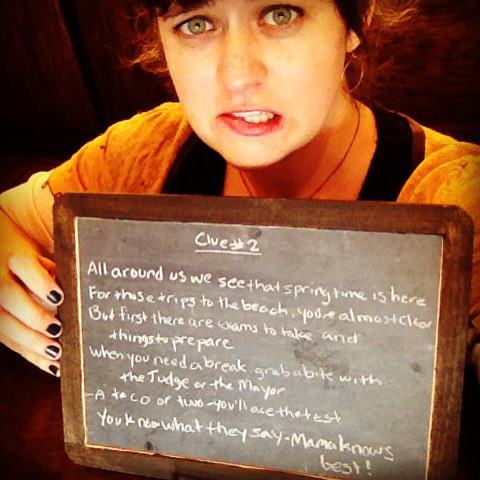 Clue #2
All around us we see that spring time is here
For those trips to the beach, you're almost clear
But first there are exams to take and
things to prepare
When you need a break grab a bite with
the Judge or the Mayor
-A taco or two -you'll ace that test
You know what they say -Mama knows
best!